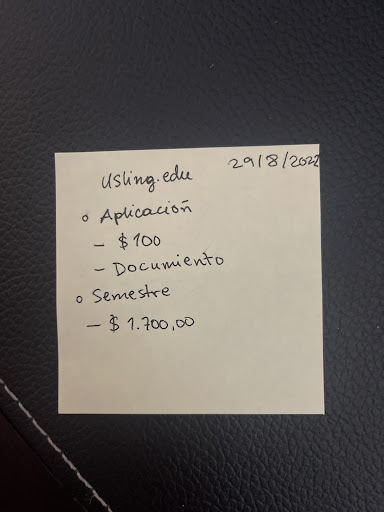 29/8/2022
usling.edu
o Aplicación
- $100
- Documiento
o Semestre
- $ 1.700,00